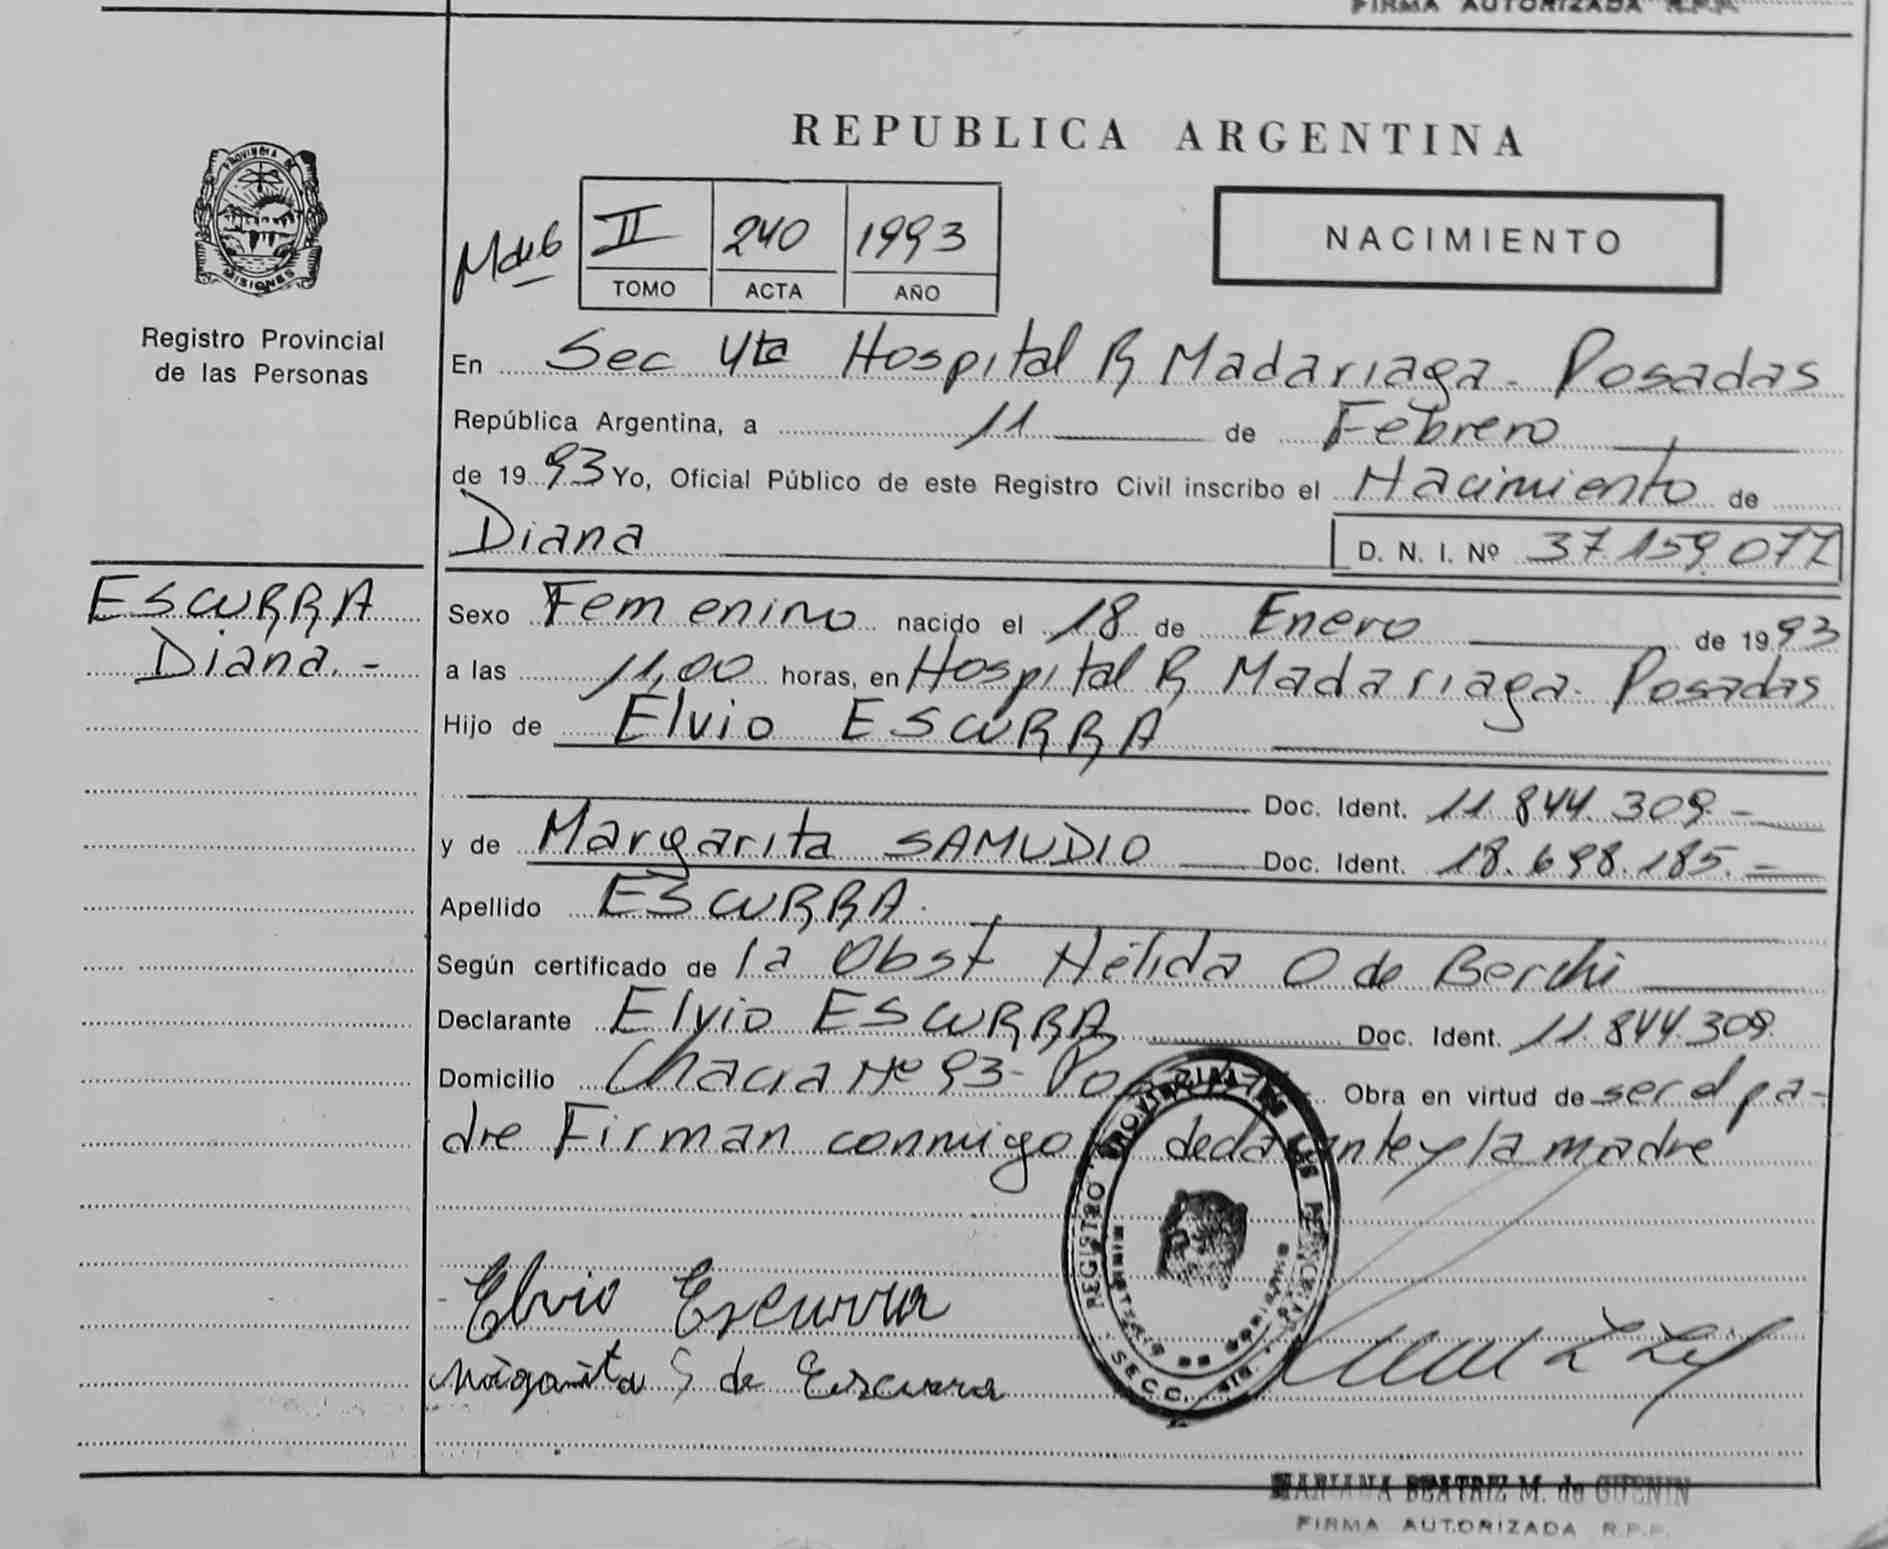 FIRMA AUTORIZADA R.P.P.
REPUBLICA ARGENTINA
PROVINCIA DE
MISIONES
Registro Provincial
de las Personas
II 240 1993
TOMO ACTA AÑO
NACIMIENTO
En Sec 4ta Hospital R Madariaga - Posadas
República Argentina, a 11 de Febrero
de 1993 Yo, Oficial Público de este Registro Civil inscribo el Nacimiento de
Diana D. N. I. Nº 37.159.077
ESCURRA
Diana.-
Sexo Femenino nacido el 18 de Enero de 1993
a las 11,00 horas, en Hospital R Madariaga - Posadas
Hijo de Elvio ESCURRA
Doc. Ident. 11.844.309.-
y de Margarita SAMUDIO Doc. Ident. 18.698.185.-
Apellido ESCURRA.
Según certificado de la Obst Hélida O de Berchi
Declarante Elvio ESCURRA Doc. Ident. 11.844.309.
Domicilio Chacra Nº 93- Obra en virtud de ser el pa-
dre Firman conmigo declarante y la madre
REGISTRO PROVINCIAL DE LAS PERSONAS
SECC.
Elvio Escurra
Margarita S de Escurra
MARIANA BEATRIZ M. de GUENIN
FIRMA AUTORIZADA R.P.P.